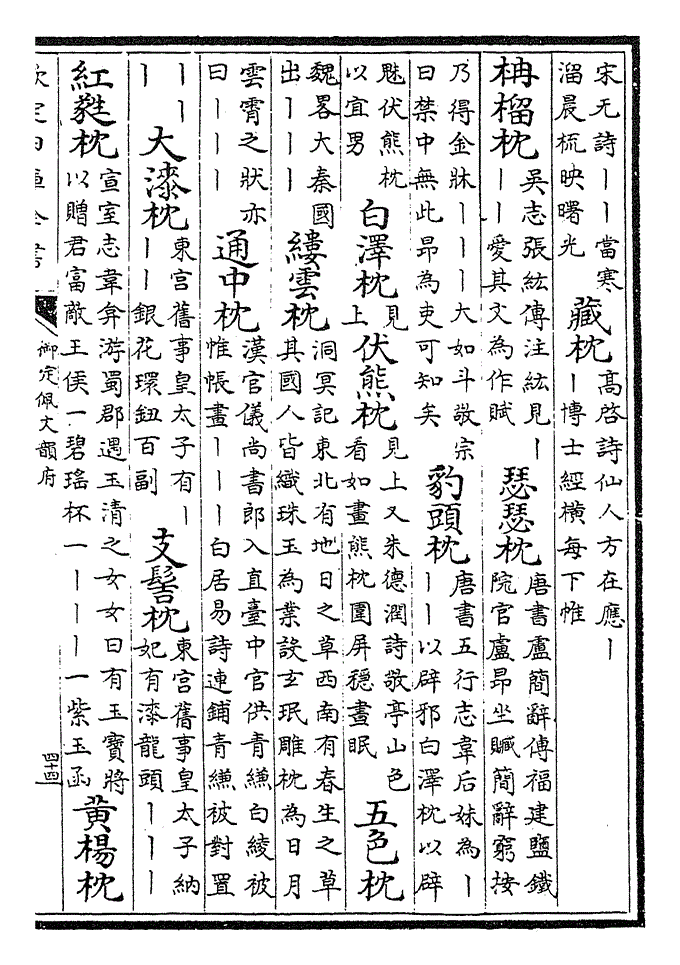 宋无詩丨丨當寒
溜晨梳映曙光
藏枕
高啓詩仙人方在應丨
丨博士經橫每下帷
柟榴枕
吳志張紘傳注紘見丨
丨丨愛其文為作賦
瑟瑟枕
唐書盧簡辭傳福建鹽鐵
院官盧昂坐贓簡辭窮按
乃得金牀丨丨丨大如斗敬宗
曰禁中無此昂為吏可知矣
豹頭枕
唐書五行志韋后妹為丨
丨丨以辟邪白澤枕以辟
魅伏熊枕
以宜男
白澤枕
見
上
伏熊枕
見上又朱德潤詩敬亭山色
看如畫熊枕圍屏穩晝眠
五色枕
魏畧大秦國
出丨丨丨
縷雲枕
洞冥記東北有地日之草西南有春生之草
其國人皆織珠玉為業設玄珉雕枕為日月
雲霄之狀亦
曰丨丨丨
通中枕
漢官儀尚書郎入直臺中官供青縑白綾被
惟帳畫丨丨丨白居易詩連鋪青縑被對置
丨丨
丨
大漆枕
東宮舊事皇太子有丨
丨丨銀花環鈕百副
支髻枕
東宮舊事皇太子納
妃有漆龍頭丨丨丨
紅蕤枕
宣室志韋弇游蜀郡遇玉清之女女曰有玉寶將
以贈君富敵王侯一碧瑤杯一丨丨丨一紫玉函
黃楊枕
欽定四庫全書
御定佩文韻府
四十四